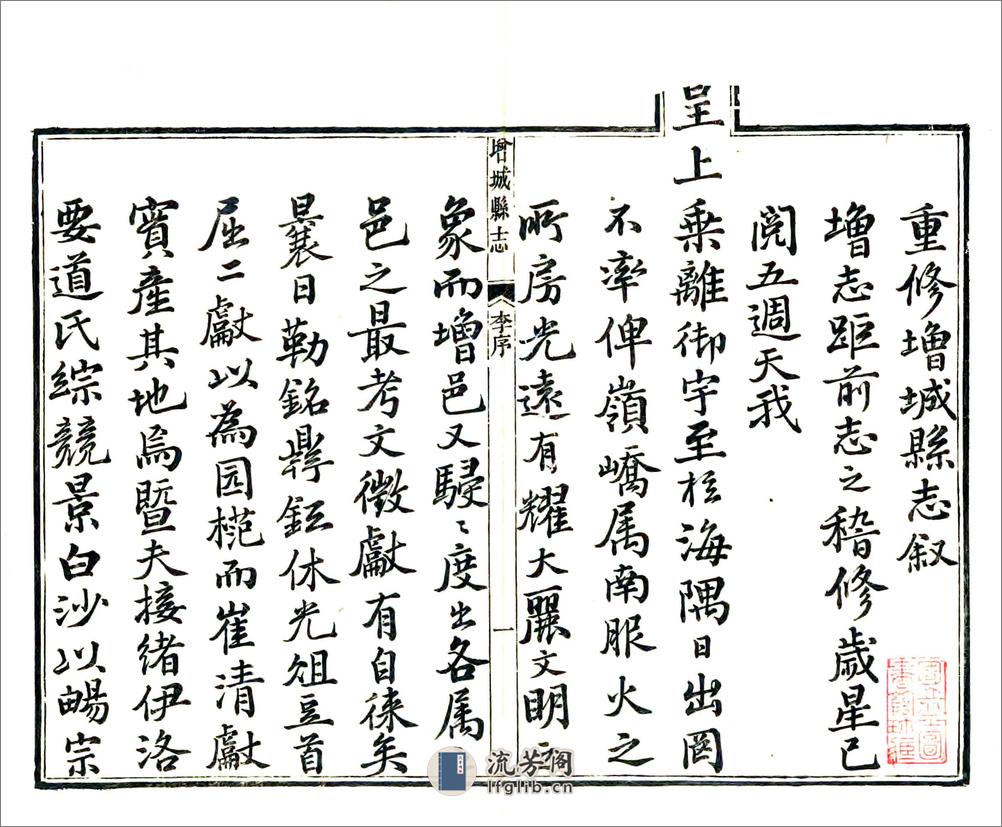 重修增城縣志叙
增志距前志之稽修歲星已
閱五週天我
皇上乗離御宇至拄海隅日出罔
不率俾嶺嶠属南服火之
所房光遠有耀大麗文明之
增城縣志
李序
一
象而增邑又駸〻度出各属
邑之最考文徵獻有自徠矣
曩日勒銘鼎鉦休光俎豆首
屈二獻以為园範而崔清獻
實産其地焉暨夫接緒伊洛
要道氏綜競景白沙以暢宗
流芳阁
lfglib.cn